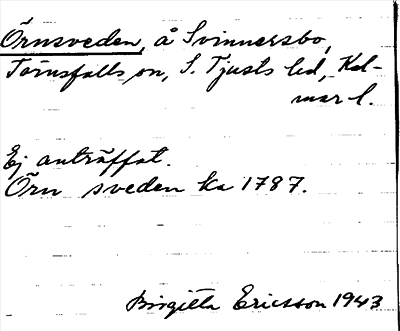 Örnsveden, å Svinnersbo,
Törnsfalls sn, S. Tjusts hd, Kal-
mar l.
Ej anträffat.
Örn sveden ka 1787.
Birgitta Ericsson 1943